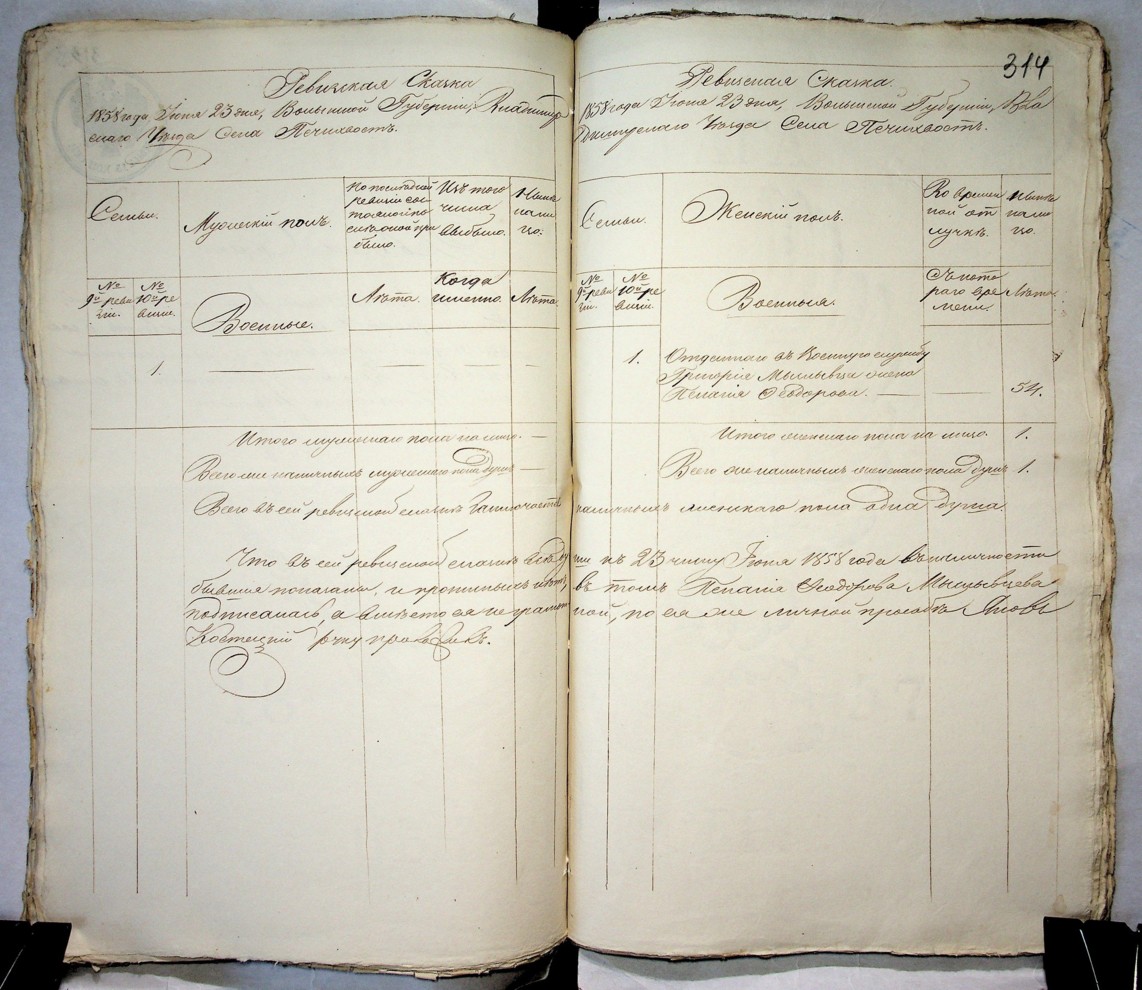 Ревизская Сказка
1858 года Іюня 23 дня, Волынской Губерніи, Владимір
скаго Уѣзда Села Печихвостъ.
Семьи.
Мужескій полъ.
По последней
ревизіи сос
тояло и по
слѣ оной при
было.
Изъ того
числа
выбыло.
Нынѣ
на ли
цо.
№
9й реви
зіи.
№
10й ре
визіи.
Военные.
Лѣта.
Когда
именно.
Лѣта
1.
Итого мужескаго пола на лицо.
Всего же наличныхъ мужескаго пола душъ
314
Ревизская Сказка.
1858 года Іюня 23 дня, Волынской Губерніи, Вла
димірскаго Уѣзда Села Печихвостъ.
Семьи.
Женскій полъ.
Во времен
ной от
лучкѣ.
Нынѣ
на ли
цо.
№
9й реви
зіи.
№
10й ре
визіи.
Военныя.
Съ кото
раго вре
мени.
Лѣта
1. Отданнаго въ Военную службу
Григорія Мысливца жена
Пелагія Ѳеодорова. 54.
Итого женскаго пола на лицо. 1.
Всего же наличныхъ женскаго пола душъ 1.
Всего въ сей ревизской сказкѣ наличныхъ женскаго пола одна душа.
Что въ сей ревизской сказкѣ всѣ души къ 23 числу Іюня 1858 года въ наличности
бывшие показаны, и прописныхъ нѣтъ, въ томъ Пелагія Ѳеодорова Мысливцева
подписалась, а вмѣсто ея не грамотной, по ея же личной просьбѣ Яковъ
Костецкій руку приложилъ.